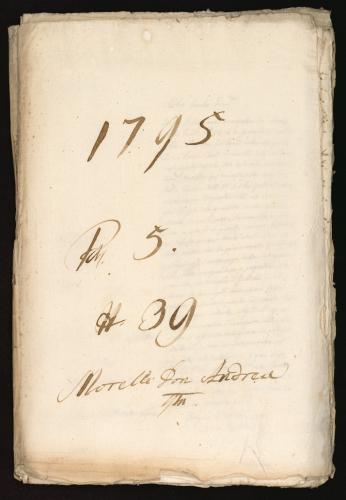 1795
5.
39
Morelli Don Andrea